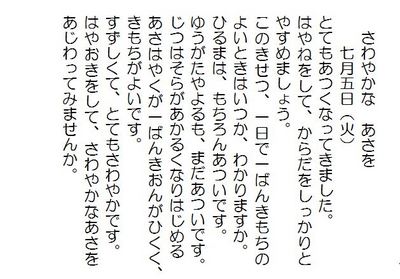 さわやかな　あさを
七月五日（火）
とてもあつくなってきました。
はやねをして、からだをしっかりと
やすめましょう。
このきせつ、一日で一ばんきもちの
よいときはいつか、わかりますか。
ひるまは、もちろんあついです。
ゆうがたやよるも、まだあついです。
じつはそらがあかるくなりはじめる
あさはやくが一ばんきおんがひくく、
きもちがよいです。
すずしくて、とてもさわやかです。
はやおきをして、さわやかなあさを
あじわってみませんか。